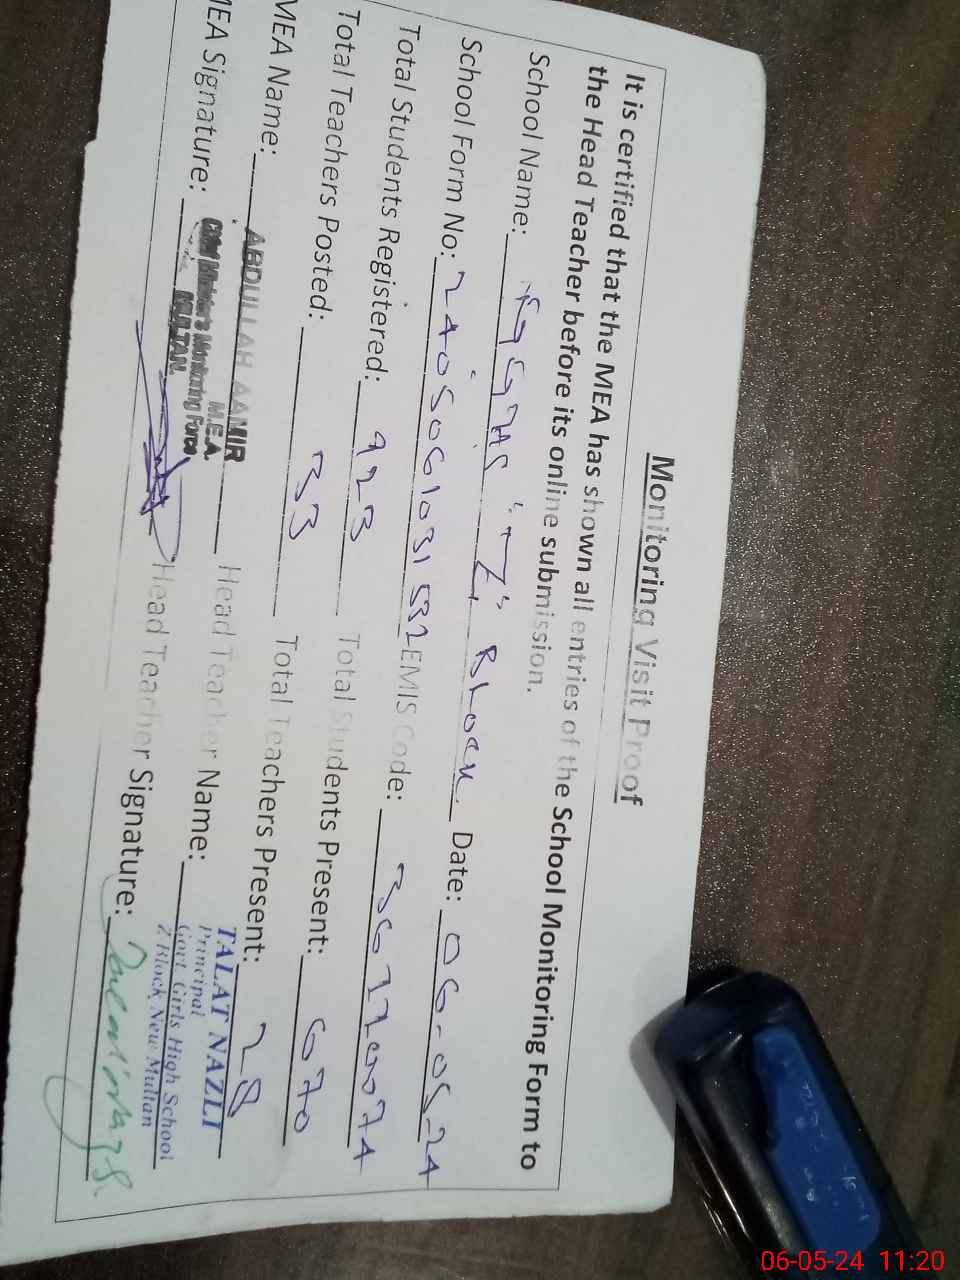 Monitoring Visit Proof
It is certified that the MEA has shown all entries of the School Monitoring Form to
the Head Teacher before its online submission.
School Name: "Z" Block Date: 06-05-24
School Form No: 2405061031532 EMIS Code:
Total Students Registered: 923 Total Students Present: 670
Total Teachers Posted: 33 Total Teachers Present: 28
MEA Name: ABDULLAH AAMIR Head Teacher Name: TALAT NAZLI
M.E.A. Principal
Chief Minister's Monitoring Force Govt. Girls High School
MULTAN Z Block New Multan
MEA Signature: Head Teacher Signature:
06-05-24 11:20